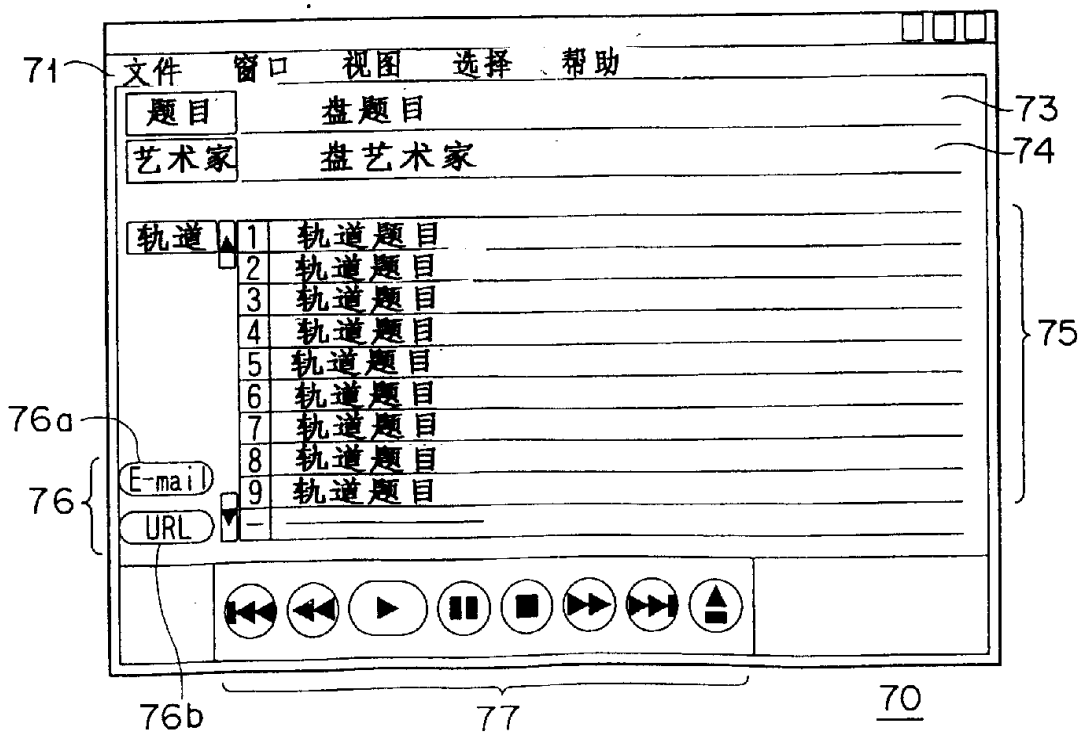 71 文件 窗口 视图 选择 帮助
题目 盘题目 73
艺术家 盘艺术家 74
轨道 1 轨道题目
2 轨道题目
3 轨道题目
4 轨道题目 75
5 轨道题目
6 轨道题目
76a 7 轨道题目
8 轨道题目
76 E-mail 9 轨道题目
URL –
76b 77 70